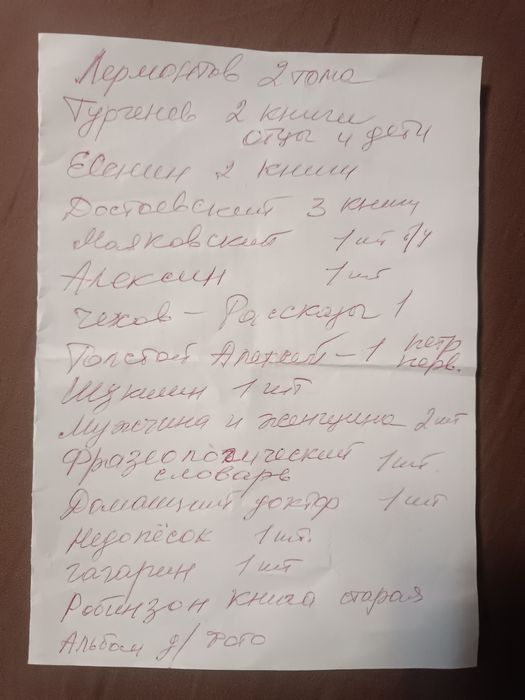 Лермонтов 2 тома
Тургенев 2 книги
отцы и дети
Есенин 2 книги
Достоевский 3 книги
Маяковский 1 шт б/у
Алексин 1 шт
Чехов – Рассказы 1
Толстой Алексей – 1 петр
перв.
Шукшин 1 шт
Мужчина и женщина 2 шт
Фразеологический 1 шт.
словарь
Домашний доктор 1 шт
Недопёсок 1 шт.
Гагарин 1 шт
Робинзон книга старая
Альбом д/ фото